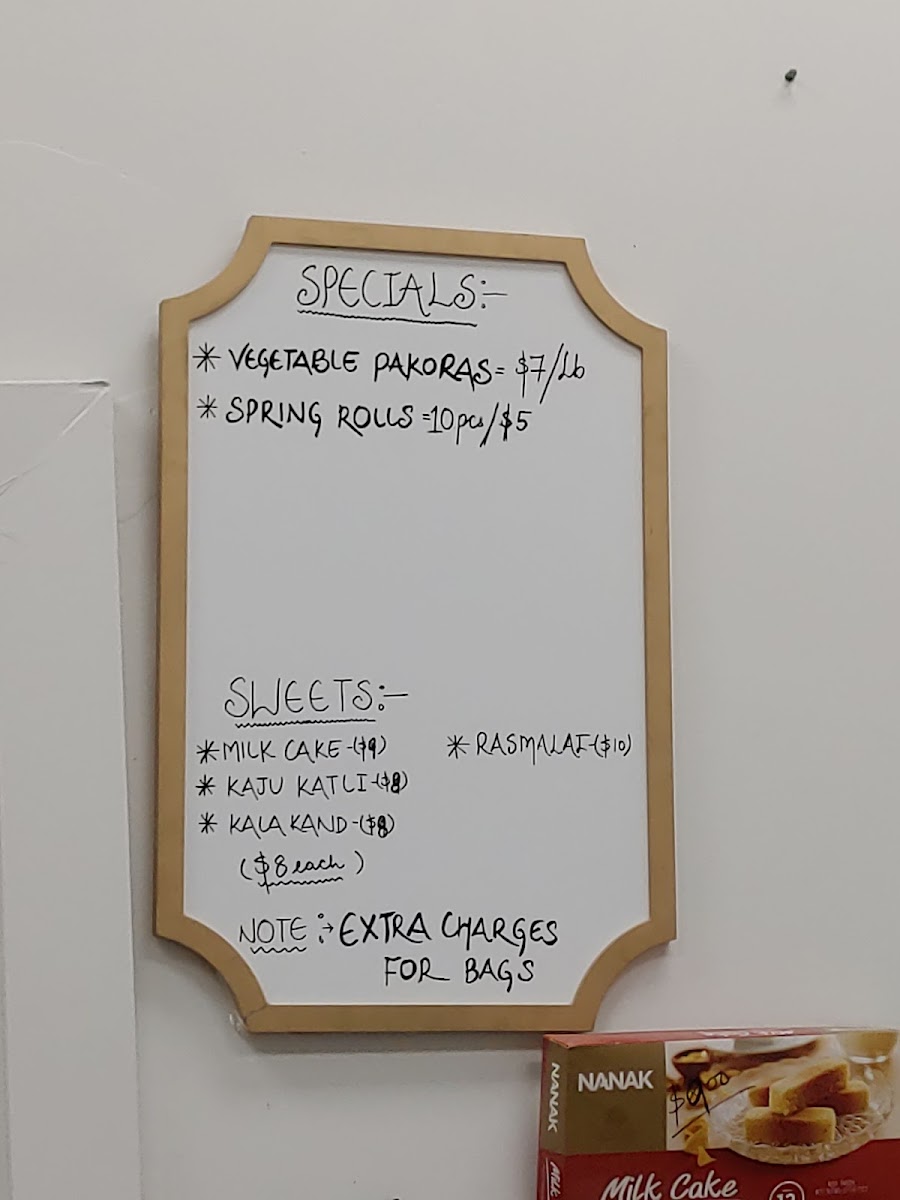 SPECIALS:-
* VEGETABLE PAKORAS= $7/Lb
* SPRING ROLLS =10pcs/$5
SWEETS:-
* MILK CAKE-($9)
* RASMALAI-($10)
* KAJU KATLI-($8)
* KALAKAND-($8)
($8 each)
NOTE :→ EXTRA CHARGES
FOR BAGS
NANAK
NANAK
$9.00
Milk Cake
12